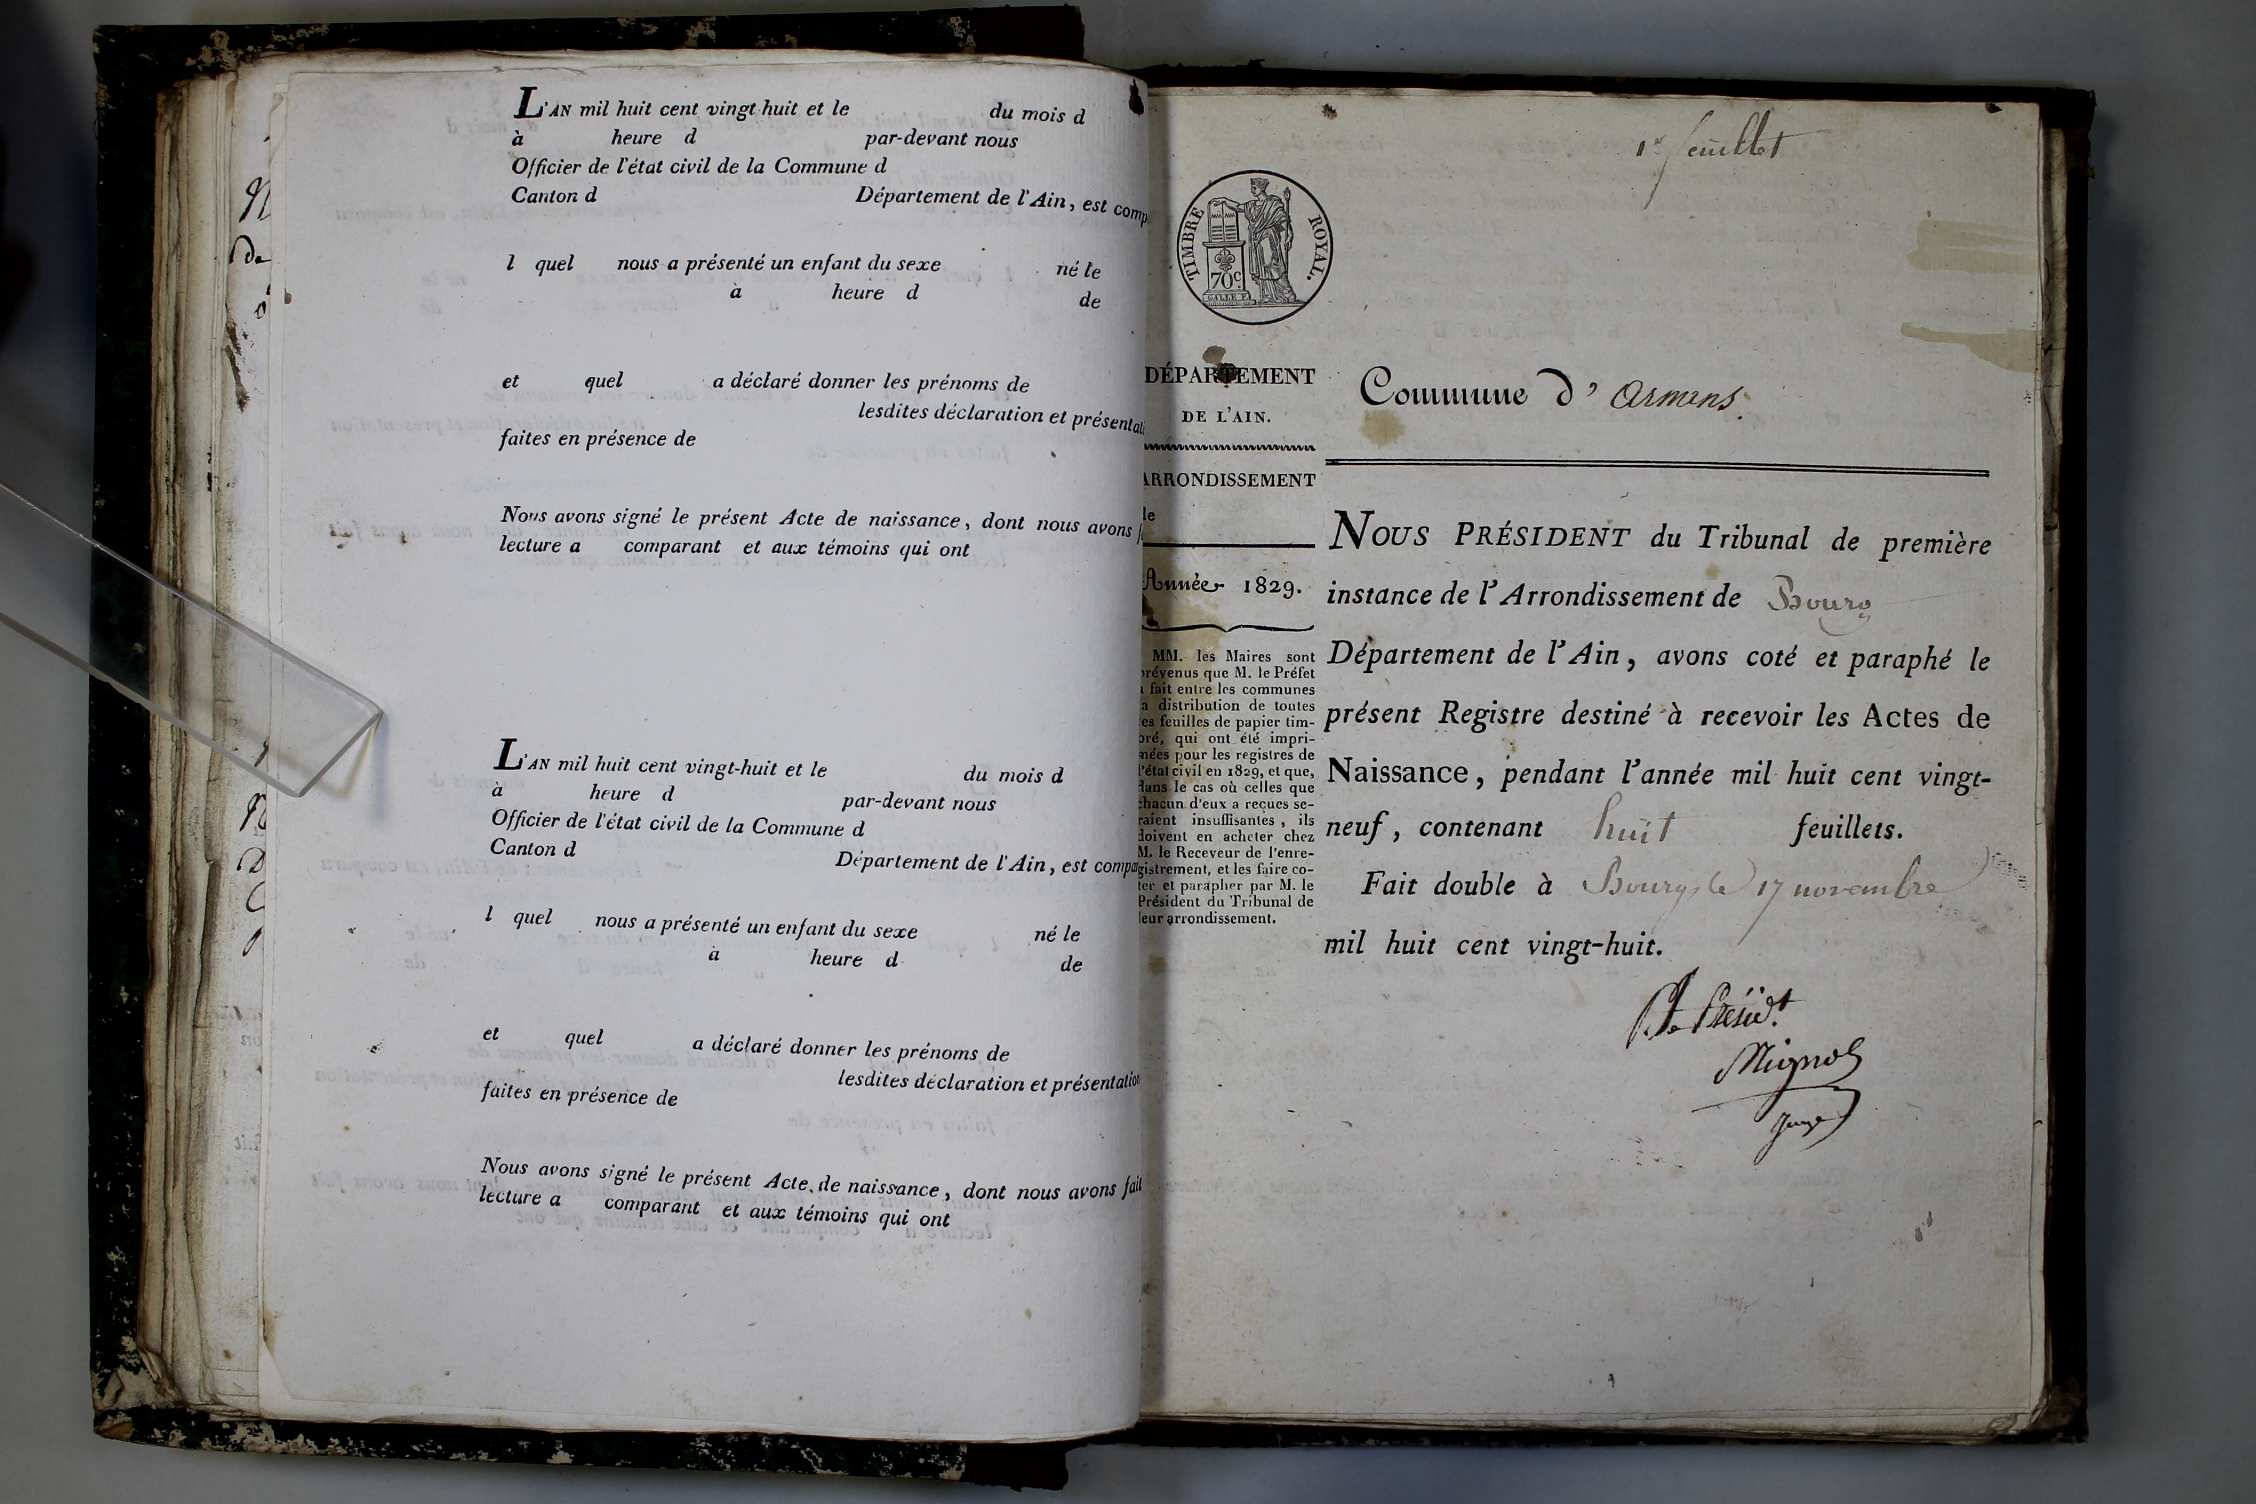 L'AN mil huit cent vingt-huit et le du mois d
à heure d par-devant nous
Officier de l'état civil de la Commune d
Canton d Département de l'Ain, est comp
l quel nous a présenté un enfant du sexe né le
à heure d de
et quel a déclaré donner les prénoms de
lesdites déclaration et présentati
faites en présence de
Nous avons signé le présent Acte de naissance, dont nous avons f
lecture a comparant et aux témoins qui ont
L'AN mil huit cent vingt-huit et le du mois d
à heure d par-devant nous
Officier de l'état civil de la Commune d
Canton d Département de l'Ain, est compa
l quel nous a présenté un enfant du sexe né le
à heure d de
et quel a déclaré donner les prénoms de
lesdites déclaration et présentation
faites en présence de
Nous avons signé le présent Acte de naissance, dont nous avons fait
lecture a comparant et aux témoins qui ont
1er feuillet
TIMBRE ROYAL.
70c
DÉPARTEMENT
DE L'AIN.
ARRONDISSEMENT
de
Année 1829.
MM. les Maires sont
prévenus que M. le Préfet
a fait entre les communes
la distribution de toutes
les feuilles de papier tim-
bré, qui ont été impri-
mées pour les registres de
l'état civil en 1829, et que,
dans le cas où celles que
chacun d'eux a reçues se-
raient insuffisantes, ils
doivent en acheter chez
M. le Receveur de l'enre-
gistrement, et les faire co-
ter et parapher par M. le
Président du Tribunal de
leur arrondissement.
Commune d' armans.
NOUS PRÉSIDENT du Tribunal de première
instance de l'Arrondissement de Bourg
Département de l'Ain, avons coté et paraphé le
présent Registre destiné à recevoir les Actes de
Naissance, pendant l'année mil huit cent vingt-
neuf, contenant huit feuillets.
Fait double à Bourg, le 17 novembre
mil huit cent vingt-huit.
Pr le Présidt.
Mignot
Juge